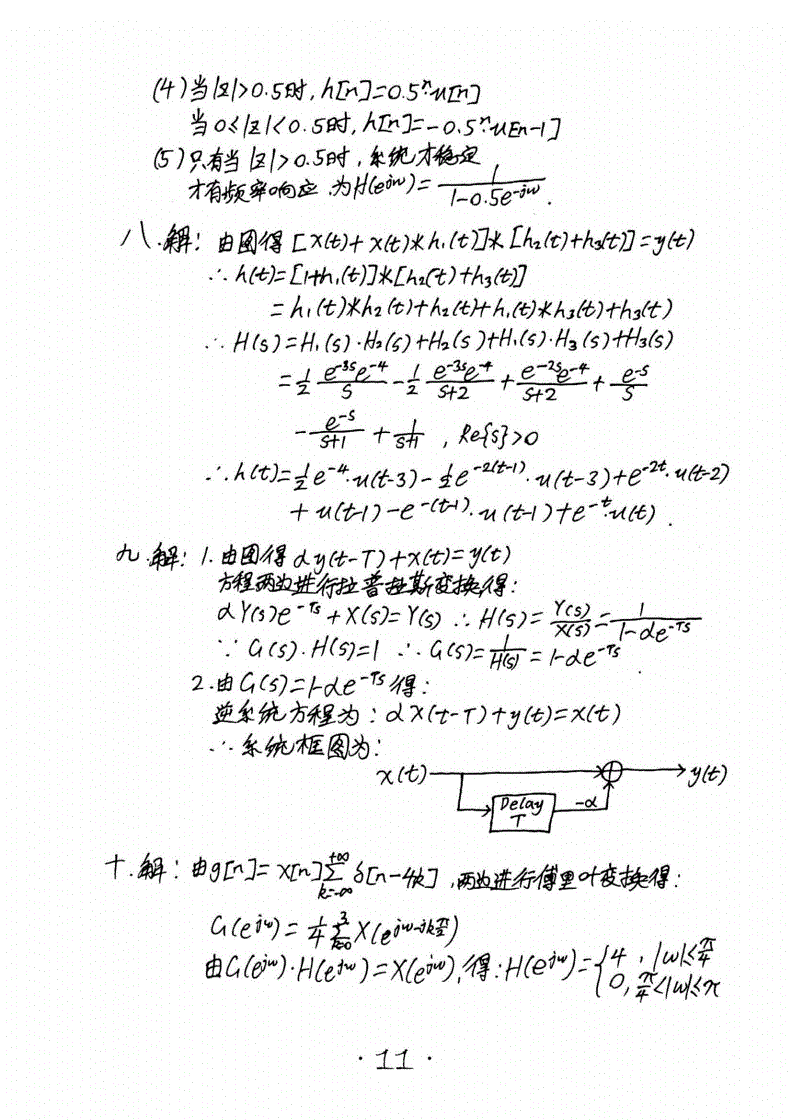 (4)当|z|>0.5时,h[n]=0.5ⁿ·u[n]
当0≤|z|<0.5时,h[n]=-0.5ⁿ·u[n-1]
(5)只有当|z|>0.5时,系统才稳定
才有频率响应,为H(e^{jw})=1/(1-0.5e^{-jw}).
八.解:由图得[x(t)+x(t)*h₁(t)]*[h₂(t)+h₃(t)]=y(t)
∴h(t)=[1+h₁(t)]*[h₂(t)+h₃(t)]
=h₁(t)*h₂(t)+h₂(t)+h₁(t)*h₃(t)+h₃(t)
∴H(s)=H₁(s)·H₂(s)+H₂(s)+H₁(s)·H₃(s)+H₃(s)
=1/2 e^{-3s}e^{-4}/s - 1/2 e^{-3s}e^{-4}/(s+2) + e^{-2s}e^{-4}/(s+2) + e^{-s}/s
-e^{-s}/(s+1) + 1/(s+1) , Re{s}>0
∴h(t)=1/2 e^{-4}·u(t-3)-1/2 e^{-2(t-1)}·u(t-3)+e^{-2t}·u(t-2)
+u(t-1)-e^{-(t-1)}·u(t-1)+e^{-t}·u(t).
九.解:1.由图得αy(t-T)+x(t)=y(t)
方程两边进行拉普拉斯变换得:
αY(s)e^{-Ts}+X(s)=Y(s) ∴H(s)=Y(s)/X(s)=1/(1-αe^{-Ts})
∵G(s)·H(s)=1 ∴G(s)=1/H(s)=1-αe^{-Ts}.
2.由G(s)=1-αe^{-Ts}得:
逆系统方程为:αx(t-T)+y(t)=x(t)
∴系统框图为:
x(t) y(t)
Delay T -α
十.解:由g[n]=x[n]∑_{k=-∞}^{+∞}δ[n-4k],两边进行傅里叶变换得:
G(e^{jw})=1/4 ∑_{k=0}^{3}X(e^{jw-jkπ/2})
由G(e^{jw})·H(e^{jw})=X(e^{jw}),得:H(e^{jw})={4, |w|≤π/4
0, π/4<|w|≤π
·11·